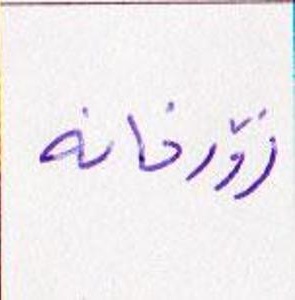 زۆرخانە